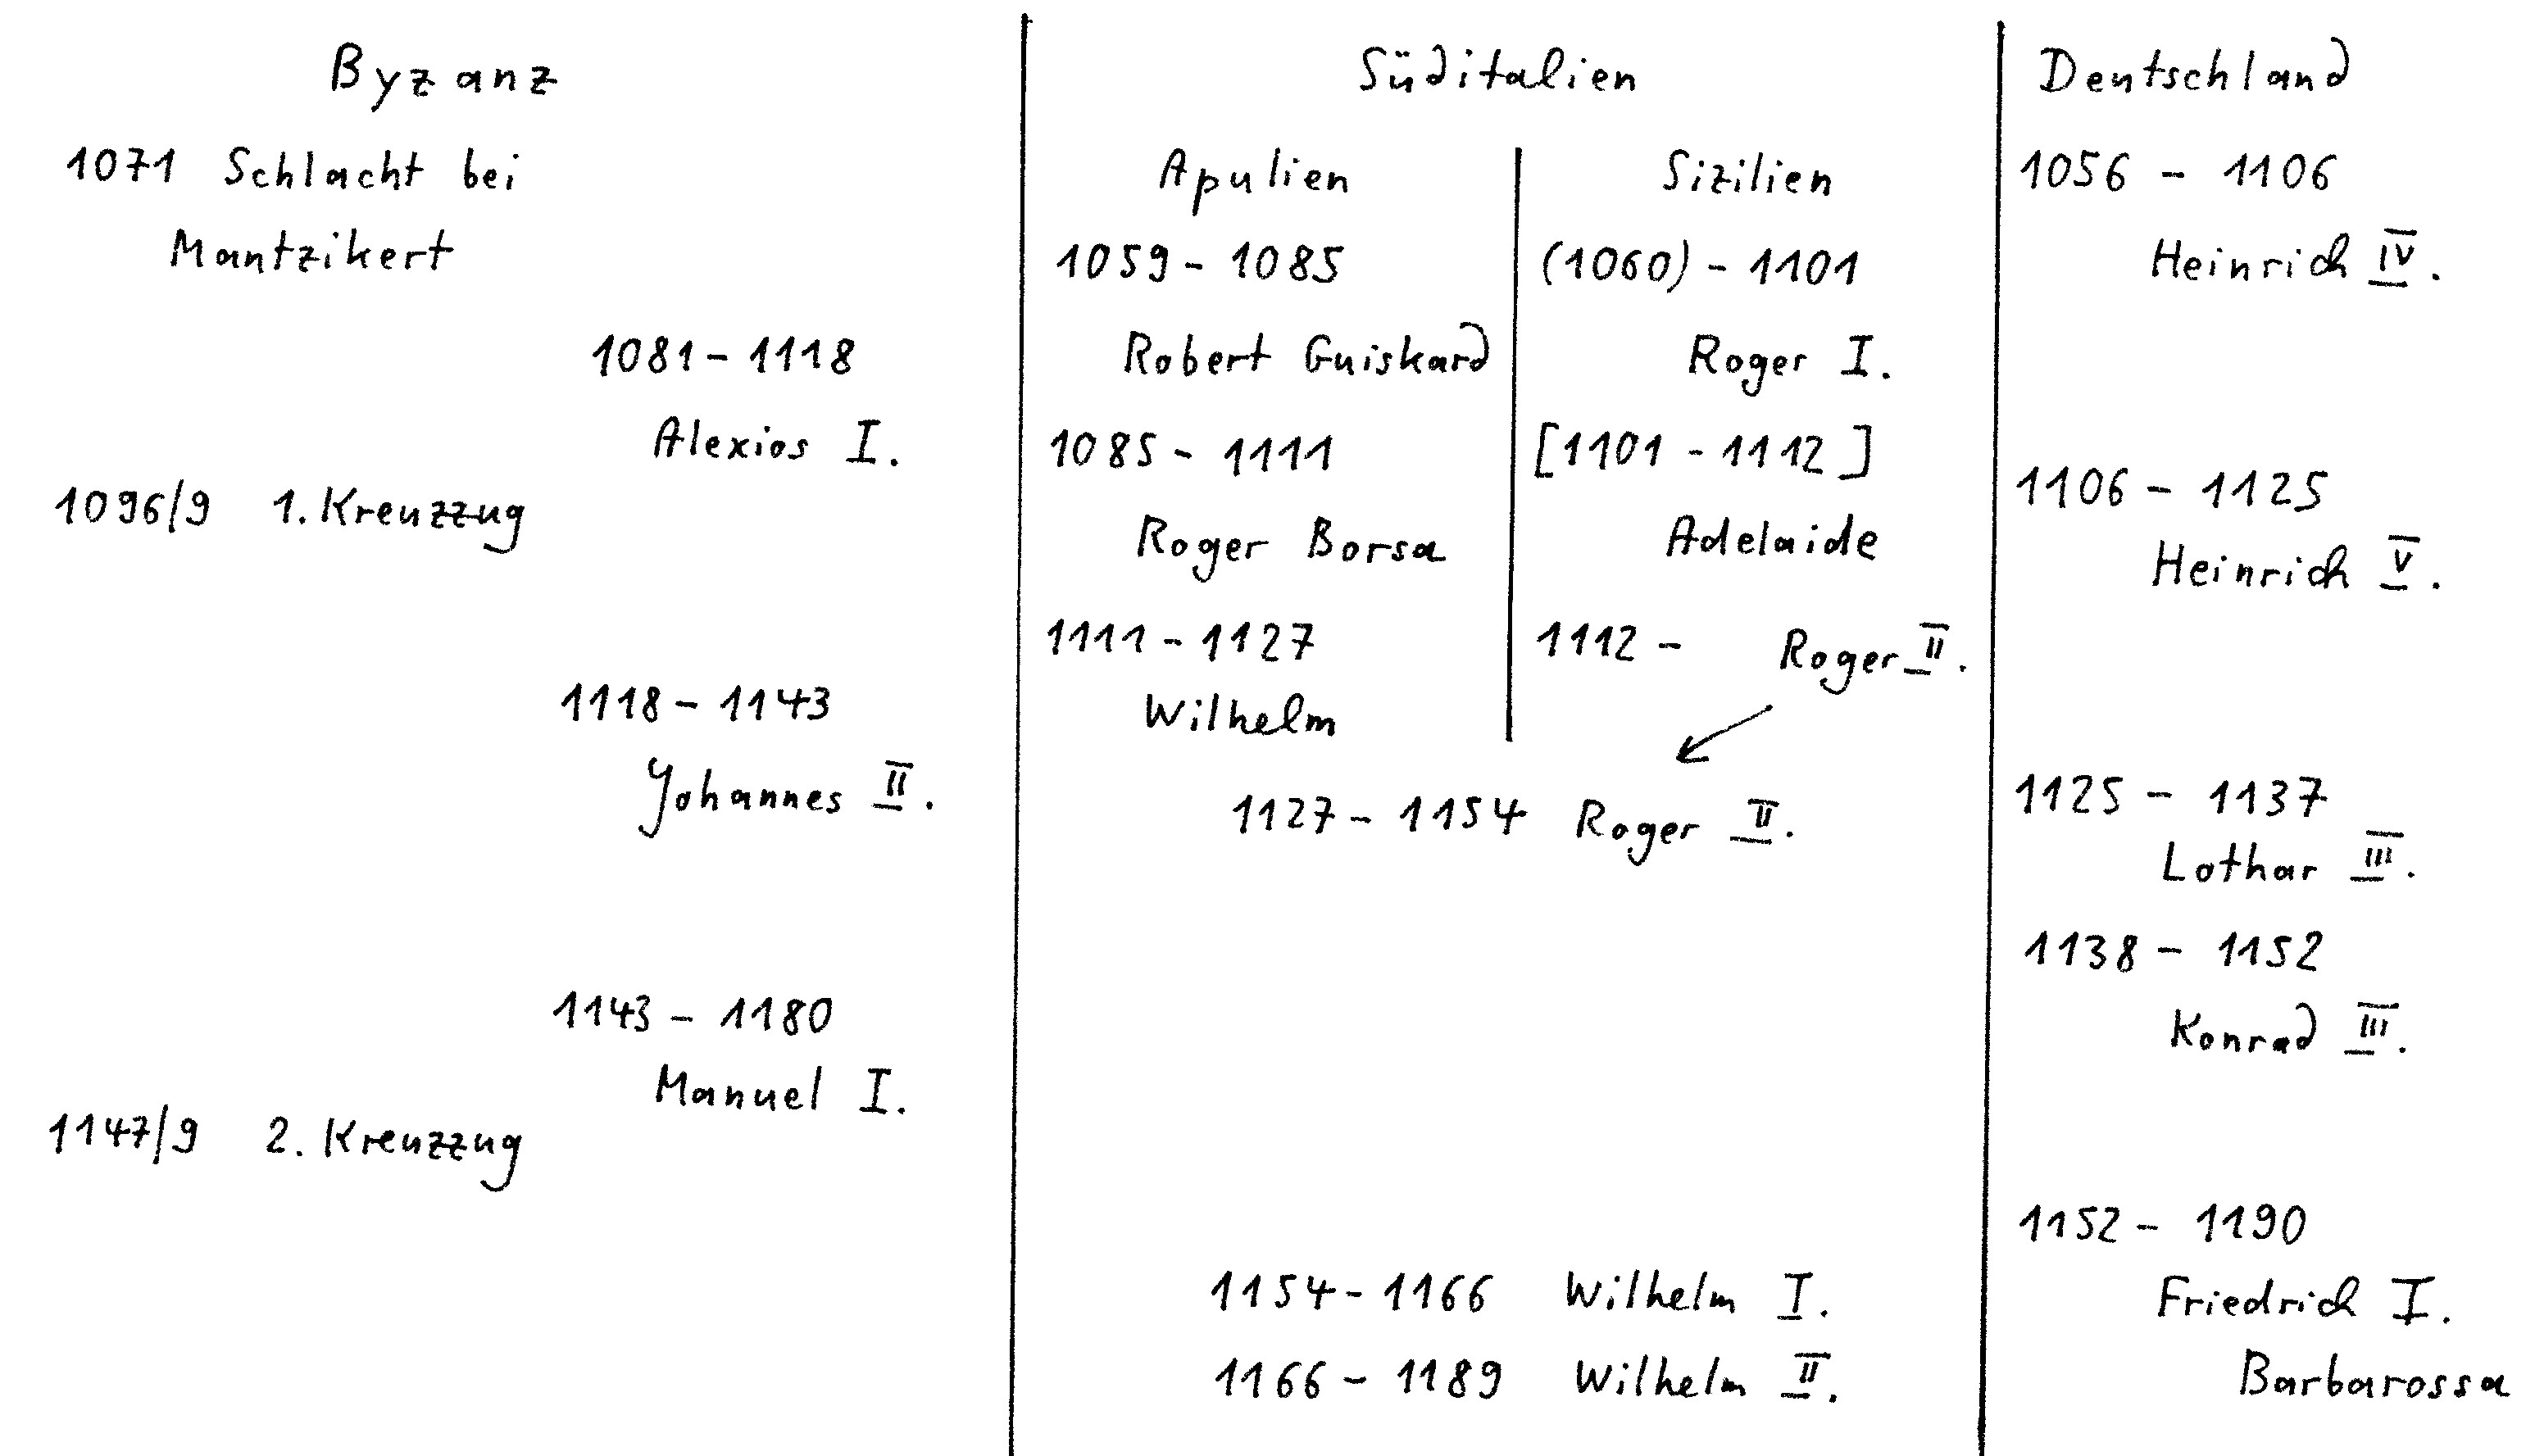 Byzanz
1071 Schlacht bei
Mantzikert
1081 - 1118
Alexios I.
1096/9 1. Kreuzzug
1118 - 1143
Johannes II.
1143 - 1180
Manuel I.
1147/9 2. Kreuzzug
Süditalien
Apulien
1059 - 1085
Robert Guiskard
1085 - 1111
Roger Borsa
1111 - 1127
Wilhelm
Sizilien
(1060) - 1101
Roger I.
[1101 - 1112]
Adelaide
1112 - Roger II.
1127 - 1154 Roger II.
1154 - 1166 Wilhelm I.
1166 - 1189 Wilhelm II.
Deutschland
1056 - 1106
Heinrich IV.
1106 - 1125
Heinrich V.
1125 - 1137
Lothar III.
1138 - 1152
Konrad III.
1152 - 1190
Friedrich I.
Barbarossa